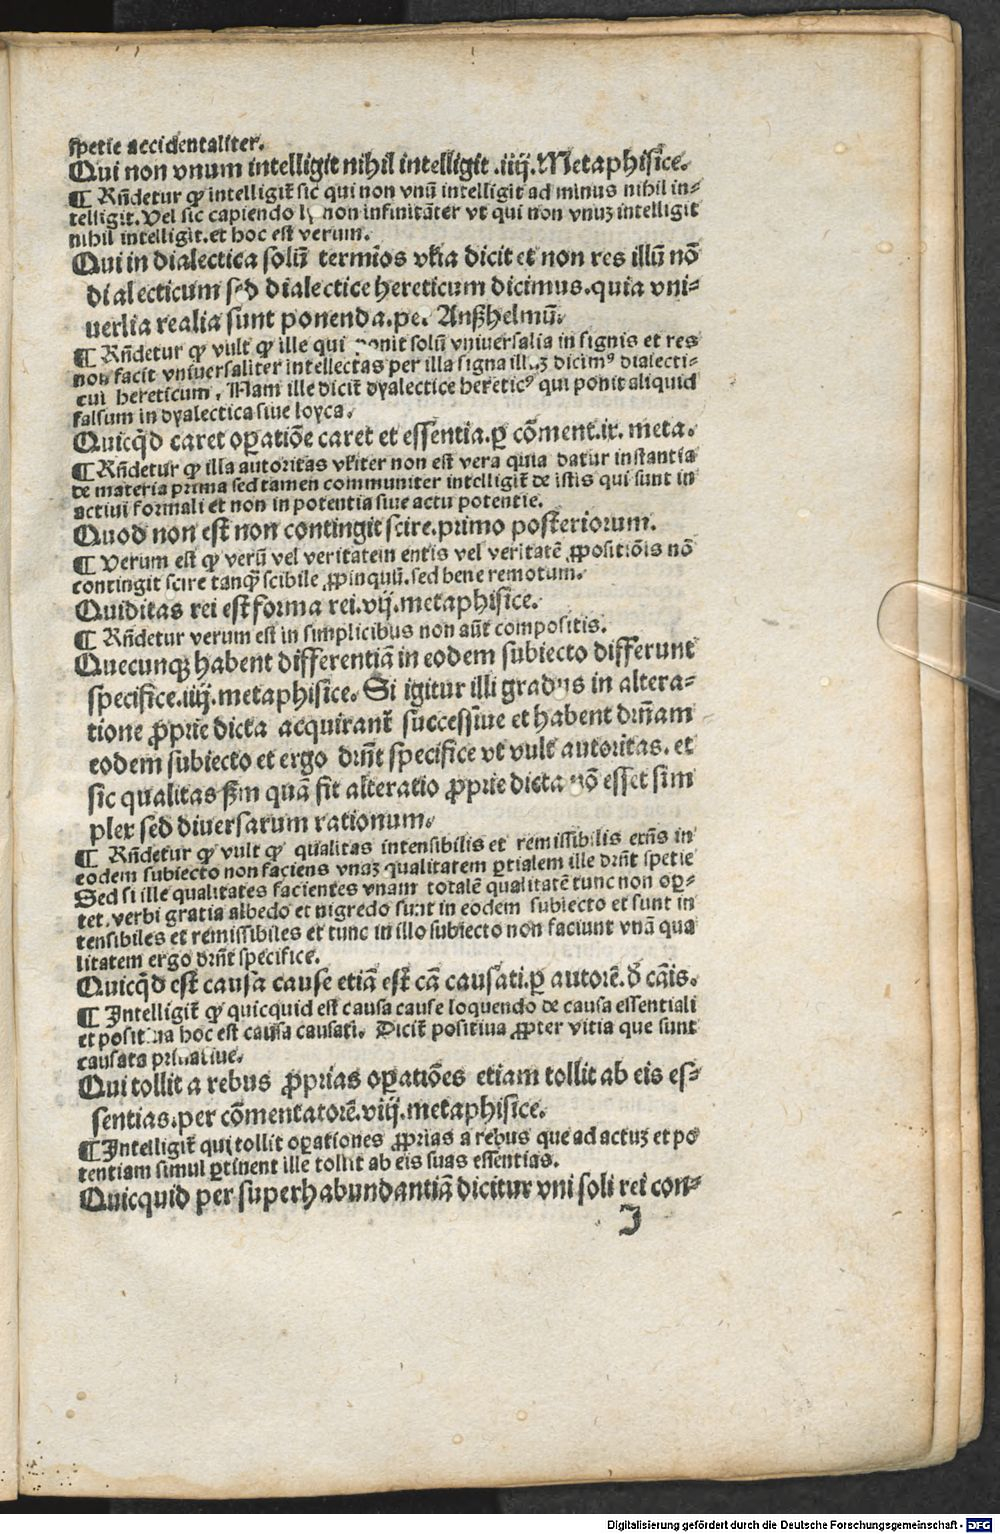 spetie accidentaliter.
Qui non vnum intelligit nihil intelligit .iiij. Metaphisice.
¶ Rñdetur ꝙ intelligit̃ sic qui non vnū intelligit ad minus nihil in-
telligit. Vel sic capiendo ly non infinitãter vt qui non vnuꝫ intelligit
nihil intelligit. et hoc est verum.
Qui in dialectica solũ termĩos vľia dicit et non res illũ nõ
dialecticum sed dialectice hereticum dicimus. quia vni-
uerlia realia sunt ponenda. pe. Anßhelmũ.
¶ Rñdetur ꝙ vult ꝙ ille qui ponit solũ vniuersalia in signis et res
non facit vniuersaliter intellectas per illa signa dicimꝰ dialecti-
cũ hereticum. Nam ille dicit̃ dyalectice hereticꝰ qui ponit aliquid
falsum in dyalectica siue loyca.
Quicq̃d caret oꝑatiõe caret et essentia. ꝑ cõment. ix. meta.
¶ Rñdetur ꝙ illa autoritas vľiter non est vera quia datur instantia
de materia prima sed tamen communiter intelligit̃ de istis qui sunt in
actiui formali et non in potentia siue actu potentie.
Quod non est non contingit scire. primo posteriorum.
¶ Verum est ꝙ verũ vel veritatem entis vel veritatẽ ꝓpositiõis nõ
contingit scire tanq̃ scibile ꝓpinquũ. sed bene remotum.
Quiditas rei est forma rei. vij. metaphisice.
¶ Rñdetur verum est in simplicibus non aũt compositis.
Quecunqꝫ habent differentiã in eodem subiecto differunt
specifice. iiij. metaphisice. Si igitur illi gradus in altera-
tione ꝓprie dicta acquirant̃ successiue et habent drñam
eodem subiecto et ergo drñt specifice vt vult autoritas. et
sic qualitas ßm quã fit alteratio ꝓprie dicta nõ esset sim
plex sed diuersarum rationum.
¶ Rñdetur ꝙ vult ꝙ qualitas intensibilis et remissibilis exñs in
eodem subiecto non faciens vnaꝫ qualitatem ꝑtialem ille drñt spetie
Sed si ille qualitates facientes vnam totalẽ qualitatẽ tunc non oꝑ-
tet. verbi gratia albedo et nigredo sunt in eodem subiecto et sunt in
tensibiles et remissibiles et tunc in illo subiecto non faciunt vnã qua
litatem ergo drñt specifice.
Quicq̃d est causa cause etiã est cã causati. ꝑ autorẽ. ð cãis.
¶ Intelligit̃ ꝙ quicquid est causa cause loquendo de causa essentiali
et positiua hoc est causa causati. Dicit̃ positiua ꝓpter vitia que sunt
causata priuatiue.
Qui tollit a rebus ꝓprias oꝑatiões etiam tollit ab eis es-
sentias. per cõmentatorẽ. viij. metaphisice.
¶ Intelligit̃ qui tollit oꝑationes ꝓprias a rebus que ad actuꝫ et po
tentiam simul ꝑtinent ille tollit ab eis suas essentias.
Quicquid per superhabundantiã dicitur vni soli rei con-
J
Digitalisierung gefördert durch die Deutsche Forschungsgemeinschaft - DFG